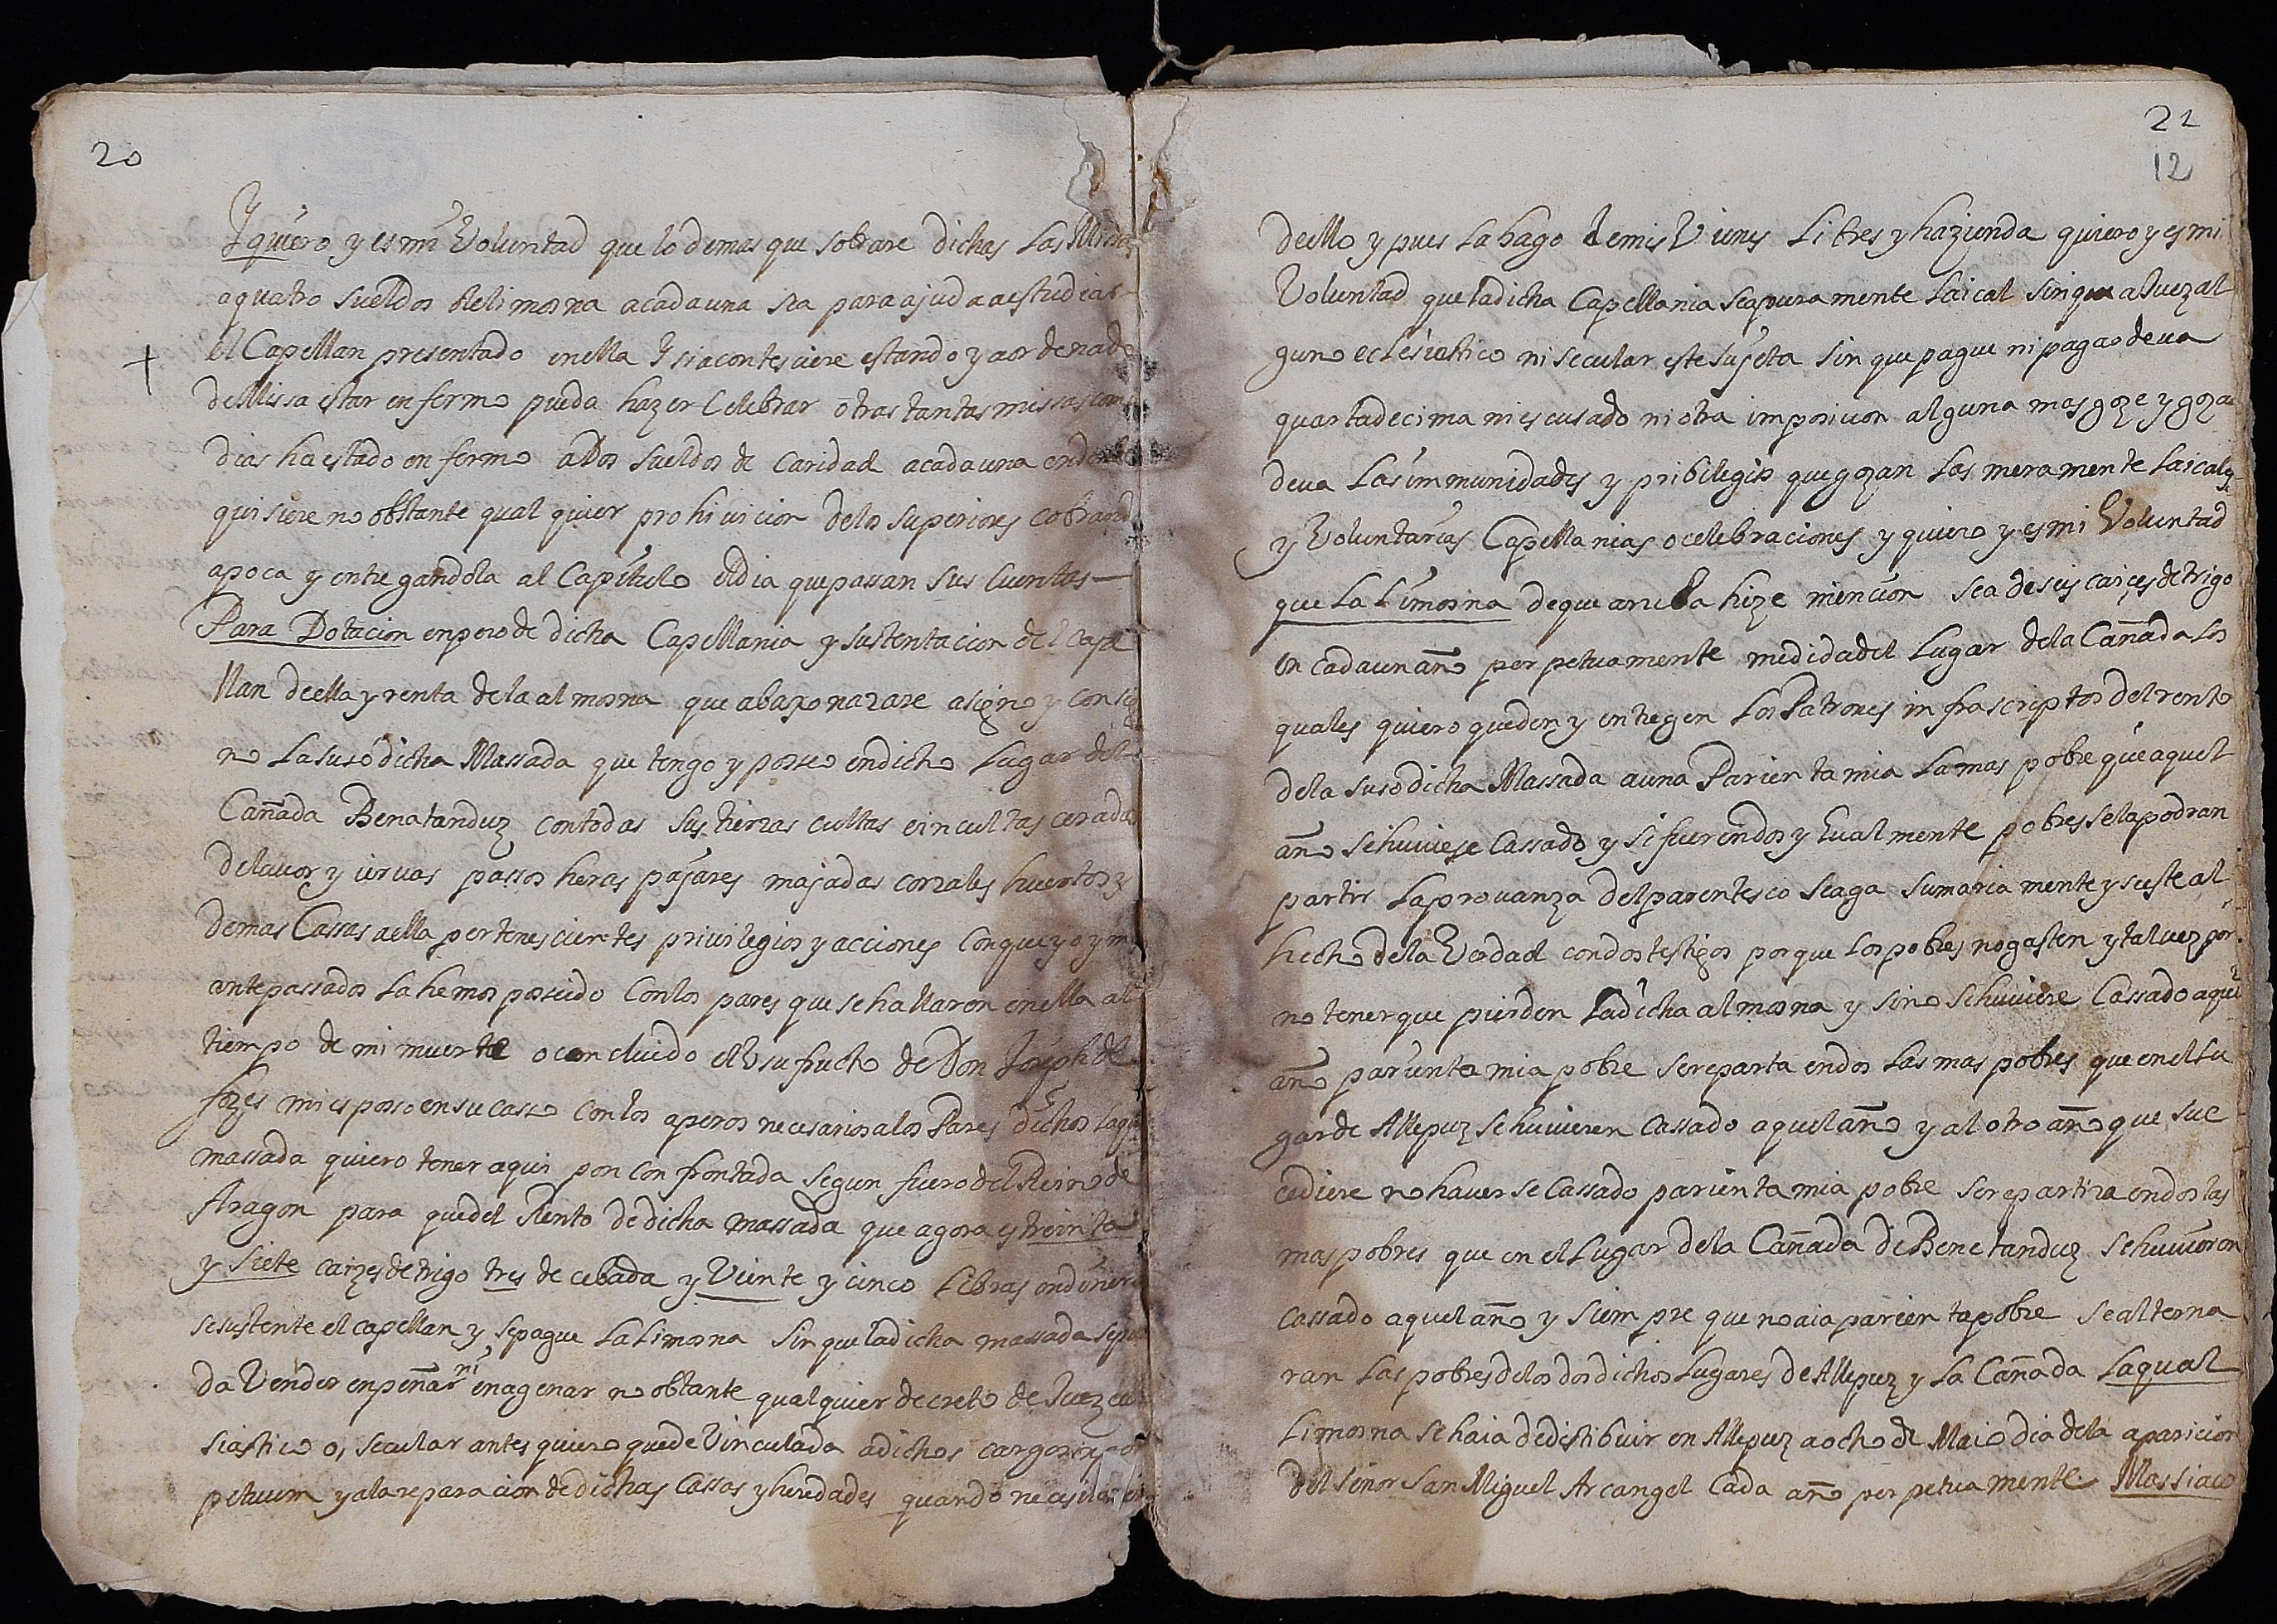 20
Y quiero y es mi Voluntad que lo demas que sobrare dichas las Missas
a quatro sueldos de limosna a cada una sea para ajuda a estudiar
el Capellan presentado en ella Y si acontesciere estando ya ordenado
de Missa estar enfermo pueda hazer Celebrar otras tantas missas como
dias ha estado enfermo a Dos sueldos de caridad a cada una en donde
quisiere no obstante qual quier prohivicion de los superiores cobrando
apoca y entregandola al Capitulo el dia que passan sus Cuentas
Para Dotacion enpero de dicha Capellania y sustentacion del Cape
llan de ella y renta de la almosna que abaxo narare asigno y consig
no la susodicha Massada que tengo y posseo en dicho Lugar de la
Cañada Benatanduz con todas sus tierras cultas e incultas ceradas
de lavor y iervas passos heras pajares majadas corrales huertos y
demas Cassas a ella pertenescientes privilegios y acciones con que yo y mis
antepassados la hemos posseido Con los pares que se hallaren en ella al
tiempo de mi muerte o concluido el Usufructo de Don Joseph de
fozes mi esposo en su casso con los aperos necesarios a los Pares dichos la qual
massada quiero tener aqui por confrontada segun fuero del Reino de
Aragon para que del Rento de dicha massada que agora es treinta
y siete caizes de trigo tres de cebada y Veinte y cinco Libras en dinero
se sustente el capellan y se pague la Limosna sin que la dicha massada se pue
da Vender enpeñar ni enagenar no obtante qualquier decreto de Juez ecle
siastico o, secular antes quiero quede Vinculada a dichos cargos in per
petuum y a la reparacion de dichas Cassas y heredades quando necesitaren
21
12
de ello y pues la hago de mis Vienes Libres y hazienda quiero y es mi
Voluntad que la dicha Capellania sea puramente laical sin que a Juez al
guno eclesiastico ni secular este sujeta sin que pague ni pagar deva
quarta decima ni escusado ni otra imposicion alguna mas goze y gozar
deva las immunidades y pribilegios que gozan las meramente laicales
y Voluntarias Capellanias o celebraciones y quiero y es mi Voluntad
que la Limosna de que arriba hize mencion sea de seis caiçes de trigo
en cada un año perpetuamente medida del Lugar de la Cañada los
quales quiero que den y entregen los Patrones infrascriptos del rento
de la susodicha Massada a una Parienta mia la mas pobre que aquel
año se huviese Cassado y si fueren dos y Eualmente pobres se la podran
partir la provanza del parentesco se aga sumariamente y se este al
hecho de la Verdad con dos testigos porque los pobres no gasten y tal vez por
no tener que pierden la dicha almosna y si no se huviere Cassado aquel
año parienta mia pobre se reparta en dos las mas pobres que en el Lu
gar de Allepuz se huvieren cassado aquel año y al otro año que suc
cediere no haverse Cassado parienta mia pobre se repartira en dos las
mas pobres que en el Lugar de la Cañada de Benetanduz se huvieron
cassado aquel año y siempre que no aia parienta pobre se alterna
ran las pobres de los dos dichos Lugares de Allepuz y la Cañada la qual
Limosna se haia de distibuir en Allepuz a ocho de Maio dia de la aparicion
del señor San Miguel Arcangel Cada año perpetuamente Mas si aco